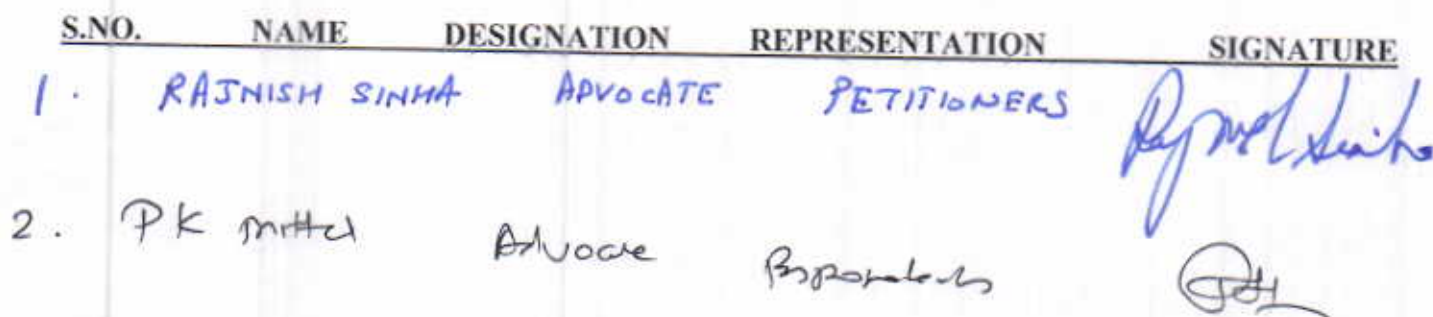 S.NO. NAME DESIGNATION REPRESENTATION SIGNATURE
1. RAJNISH SINHA ADVOCATE PETITIONERS Rajnish Sinha
2. PK Mittal Advocate Respondents